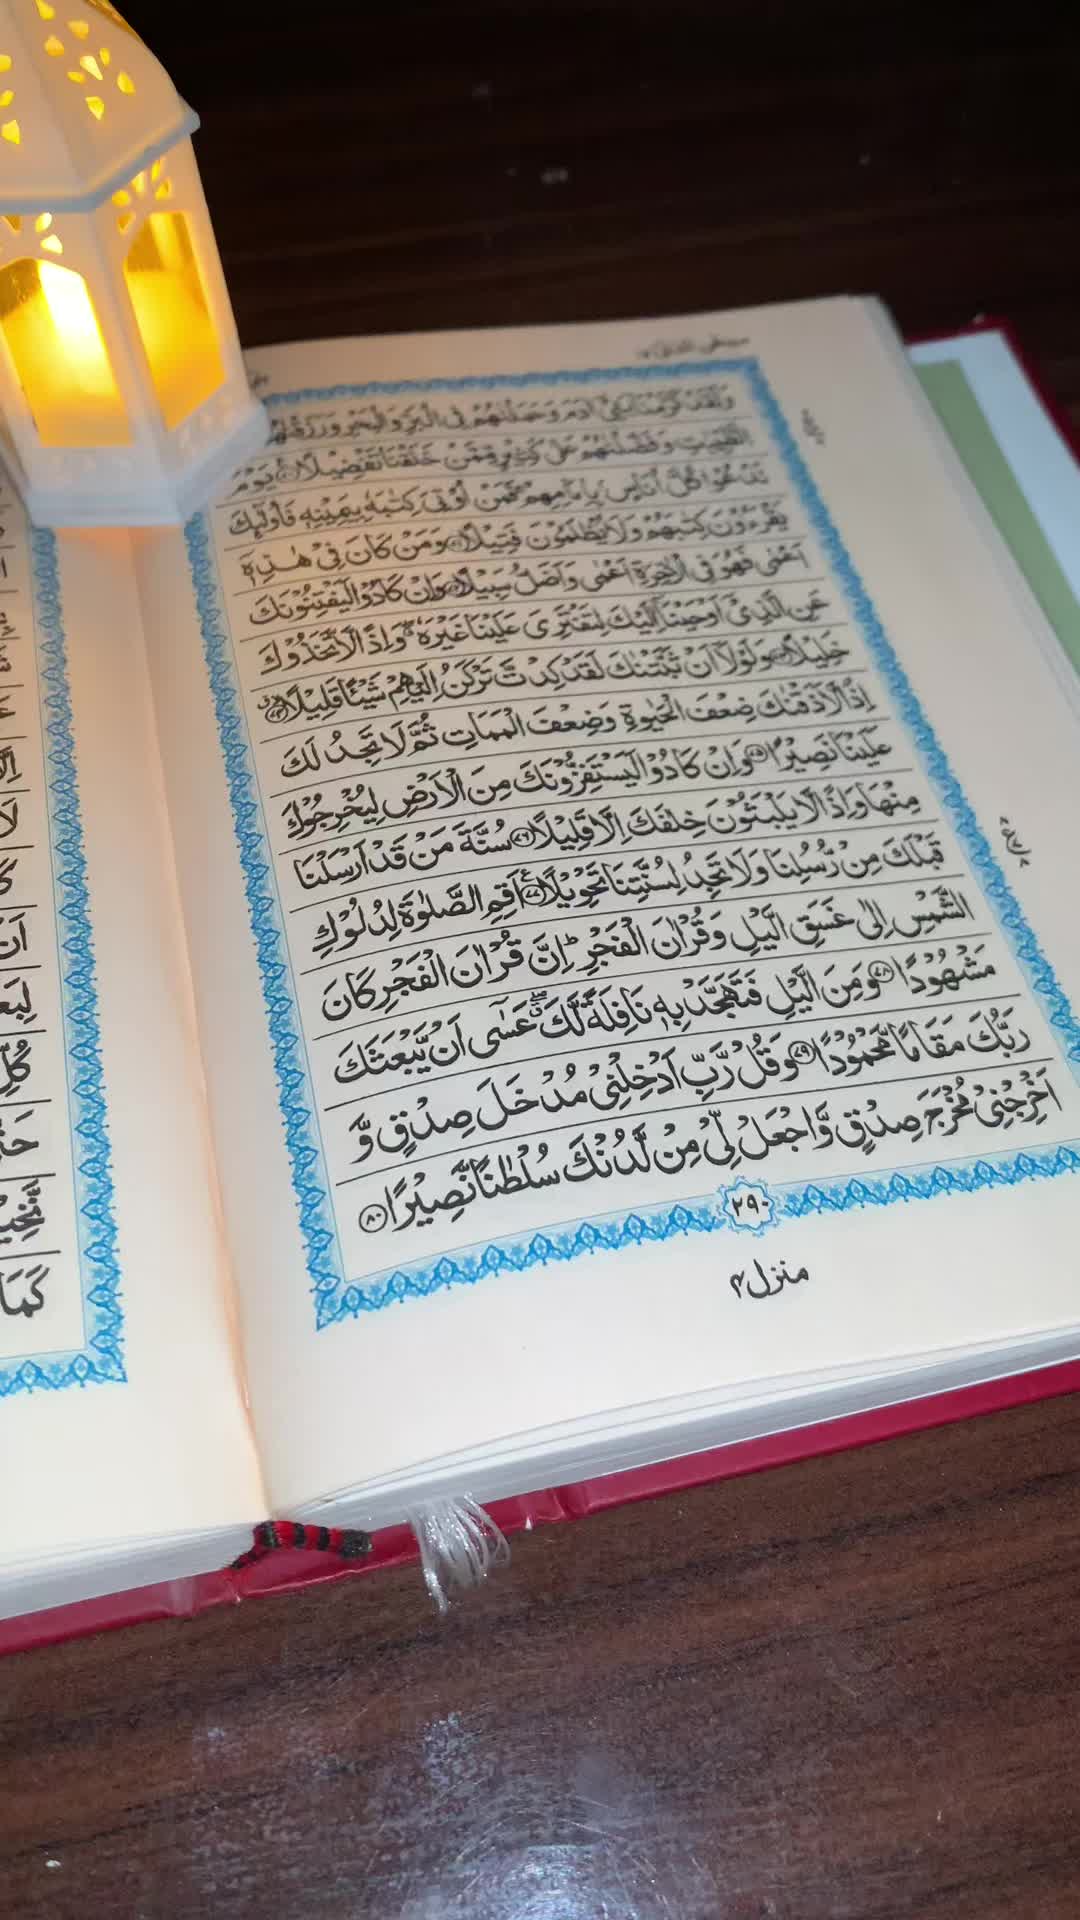 وَلَقَدْ كَرَّمْنَا بَنِيْٓ اٰدَمَ وَحَمَلْنٰهُمْ فِي الْبَرِّ وَالْبَحْرِ وَرَزَقْنٰهُمْ
الطَّيِّبٰتِ وَفَضَّلْنٰهُمْ عَلٰى كَثِيْرٍ مِّمَّنْ خَلَقْنَا تَفْضِيْلًا ۝٧٠ يَوْمَ
نَدْعُوْا كُلَّ اُنَاسٍۭ بِاِمَامِهِمْ ۚ فَمَنْ اُوْتِيَ كِتٰبَهٗ بِيَمِيْنِهٖ فَاُولٰٓئِكَ
يَقْرَءُوْنَ كِتٰبَهُمْ وَلَا يُظْلَمُوْنَ فَتِيْلًا ۝٧١ وَمَنْ كَانَ فِيْ هٰذِهٖٓ
اَعْمٰى فَهُوَ فِي الْاٰخِرَةِ اَعْمٰى وَاَضَلُّ سَبِيْلًا ۝٧٢ وَاِنْ كَادُوْا لَيَفْتِنُوْنَكَ
عَنِ الَّذِيْٓ اَوْحَيْنَآ اِلَيْكَ لِتَفْتَرِيَ عَلَيْنَا غَيْرَهٗ ۖ وَاِذًا لَّاتَّخَذُوْكَ
خَلِيْلًا ۝٧٣ وَلَوْلَآ اَنْ ثَبَّتْنٰكَ لَقَدْ كِدْتَّ تَرْكَنُ اِلَيْهِمْ شَيْـًٔا قَلِيْلًا ۝٧٤
اِذًا لَّاَذَقْنٰكَ ضِعْفَ الْحَيٰوةِ وَضِعْفَ الْمَمَاتِ ثُمَّ لَا تَجِدُ لَكَ
عَلَيْنَا نَصِيْرًا ۝٧٥ وَاِنْ كَادُوْا لَيَسْتَفِزُّوْنَكَ مِنَ الْاَرْضِ لِيُخْرِجُوْكَ
مِنْهَا وَاِذًا لَّا يَلْبَثُوْنَ خِلٰفَكَ اِلَّا قَلِيْلًا ۝٧٦ سُنَّةَ مَنْ قَدْ اَرْسَلْنَا
قَبْلَكَ مِنْ رُّسُلِنَا وَلَا تَجِدُ لِسُنَّتِنَا تَحْوِيْلًا ۝٧٧ اَقِمِ الصَّلٰوةَ لِدُلُوْكِ
الشَّمْسِ اِلٰى غَسَقِ الَّيْلِ وَقُرْاٰنَ الْفَجْرِ ؕ اِنَّ قُرْاٰنَ الْفَجْرِ كَانَ
مَشْهُوْدًا ۝٧٨ وَمِنَ الَّيْلِ فَتَهَجَّدْ بِهٖ نَافِلَةً لَّكَ ۖ عَسٰٓى اَنْ يَّبْعَثَكَ
رَبُّكَ مَقَامًا مَّحْمُوْدًا ۝٧٩ وَقُلْ رَّبِّ اَدْخِلْنِيْ مُدْخَلَ صِدْقٍ وَّ
اَخْرِجْنِيْ مُخْرَجَ صِدْقٍ وَّاجْعَلْ لِّيْ مِنْ لَّدُنْكَ سُلْطٰنًا نَّصِيْرًا ۝٨٠
٢٩٠
منزل ٤